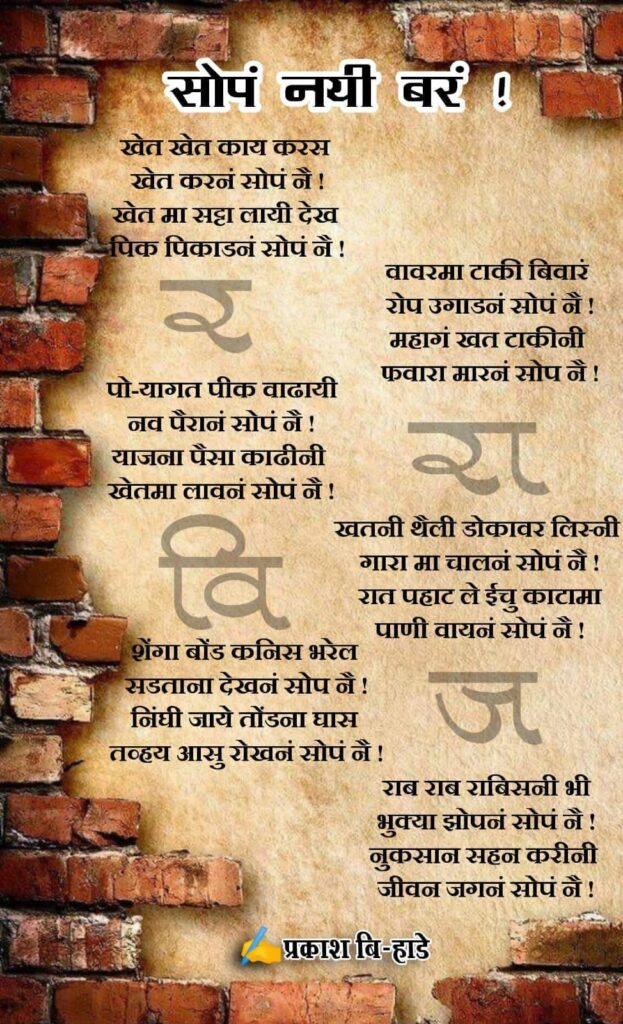 सोपं नयी बरं !
खेत खेत काय करस
खेत करनं सोपं नै !
खेत मा सट्टा लायी देख
पिक पिकाडनं सोपं नै !
वावरमा टाकी बिवारं
रोप उगाडनं सोपं नै !
महागं खत टाकीनी
फवारा मारनं सोप नै !
र
पो-यागत पीक वाढायी
नव पैरानं सोपं नै !
याजना पैसा काढीनी
खेतमा लावनं सोपं नै !
रा
खतनी थैली डोकावर लिस्नी
गारा मा चालनं सोपं नै !
रात पहाट ले ईचु काटामा
पाणी वायनं सोपं नै !
वि
शेंगा बोंड कनिस भरेल
सडताना देखनं सोप नै !
निंघी जाये तोंडना घास
तव्हय आसु रोखनं सोपं नै !
ज
राब राब राबिसनी भी
भुक्या झोपनं सोपं नै !
नुकसान सहन करीनी
जीवन जगनं सोपं नै !
प्रकाश बि-हाडे